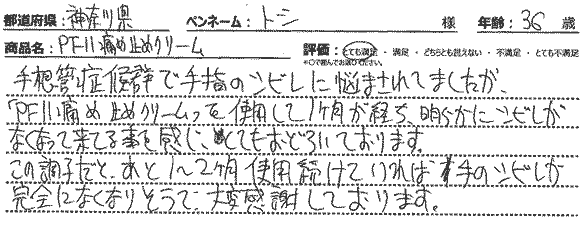 都道府県: 神奈川県 ペンネーム: トシ 様 年齢: 36 歳
商品名: PF11痛め止めクリーム 評価: とても満足 ・ 満足 ・ どちらとも言えない ・ 不満足 ・ とても不満足
*○で囲んでお選びください。
手根管症候群で手指のシビレに悩まされてましたが、
「PF11痛め止めクリーム」を使用して1ヶ月が経ち、明らかにシビレが
なくなって来てる事を感じ、とてもおどろいております。
この調子だと、あと1〜2ヶ月使用続けていければ手のシビレが
完全になくなりそうで、大変感謝しております。